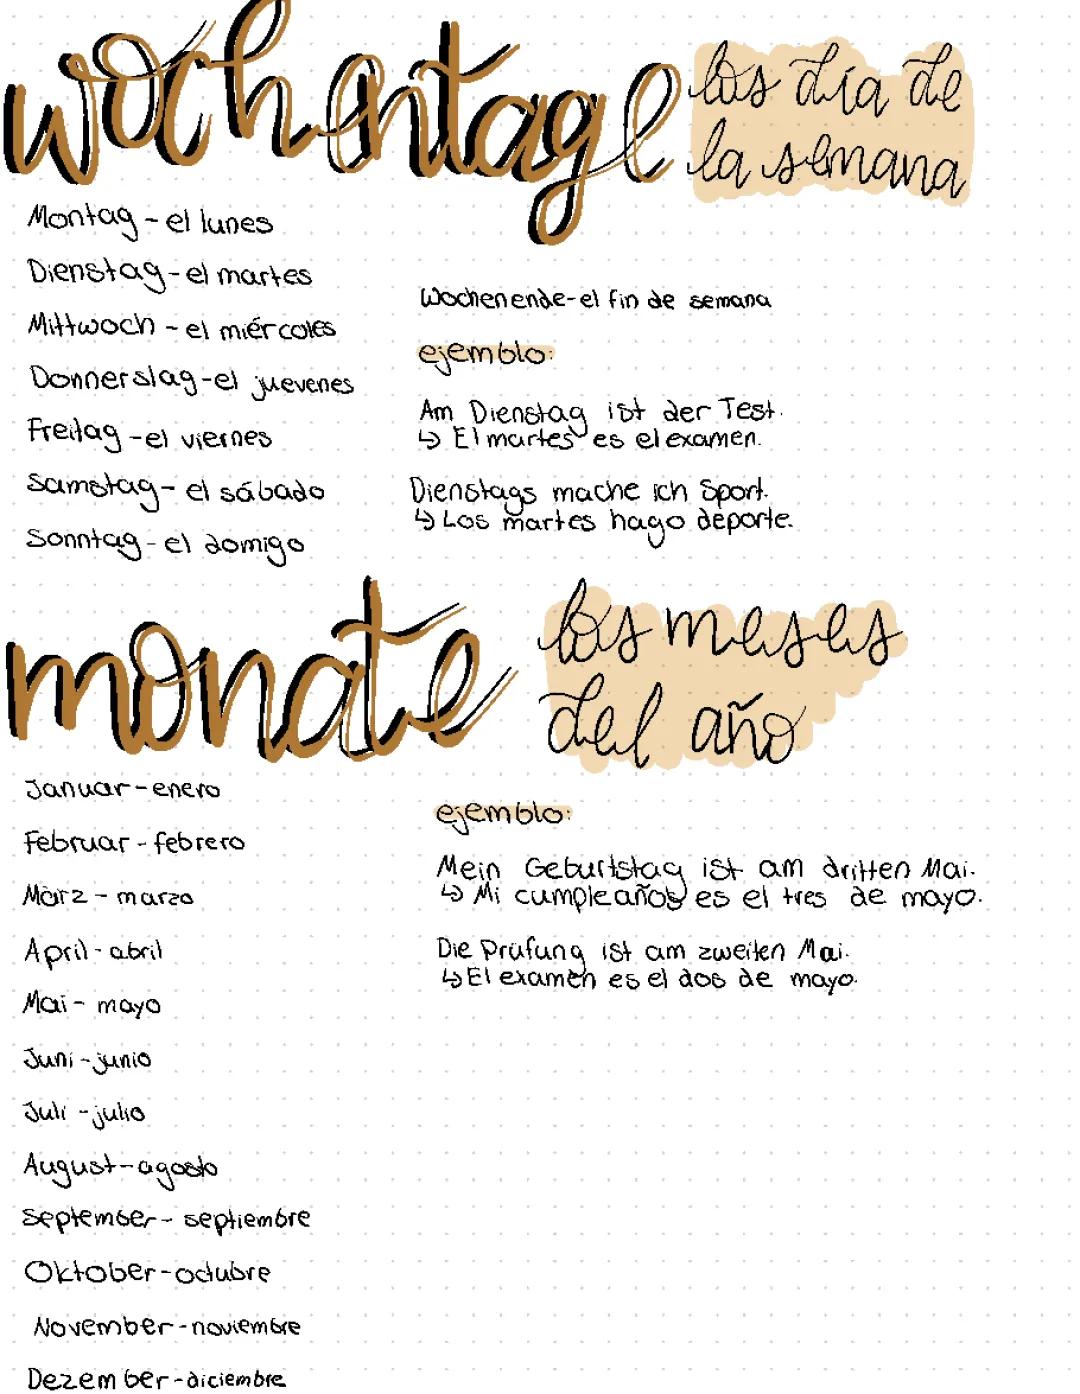 wochentage
los día de
la semana
Montag - el lunes
Dienstag - el martes
Mittwoch - el miércoles
Donnerslag - el juevenes
Freitag - el viernes
Samstag - el sábado
Sonntag - el domigo
Wochenende - el fin de semana
ejemblo:
Am Dienstag ist der Test.
↳ El martes es el examen.
Dienstags mache ich Sport.
↳ Los martes hago deporte.
monate
los meses
del año
Januar - enero
Februar - febrero
März - marzo
April - abril
Mai - mayo
Juni - junio
Juli - julio
August - agosto
September - septiembre
Oktober - octubre
November - noviembre
Dezember - diciembre
ejemblo:
Mein Geburtstag ist am dritten Mai.
↳ Mi cumpleaños es el tres de mayo.
Die Prüfung ist am zweiten Mai.
↳ El examen es el dos de mayo.